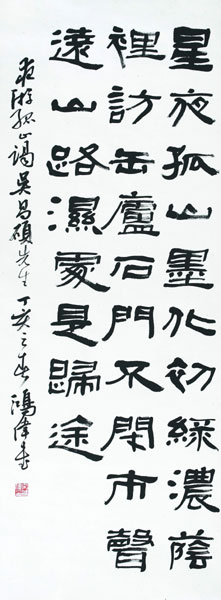 星夜孤山墨化初綠濃蔭
裡訪缶廬石門不閑市聲
遠山路濕處是歸途
夜游孤山謁吳昌碩先生丁亥之春鴻偉書